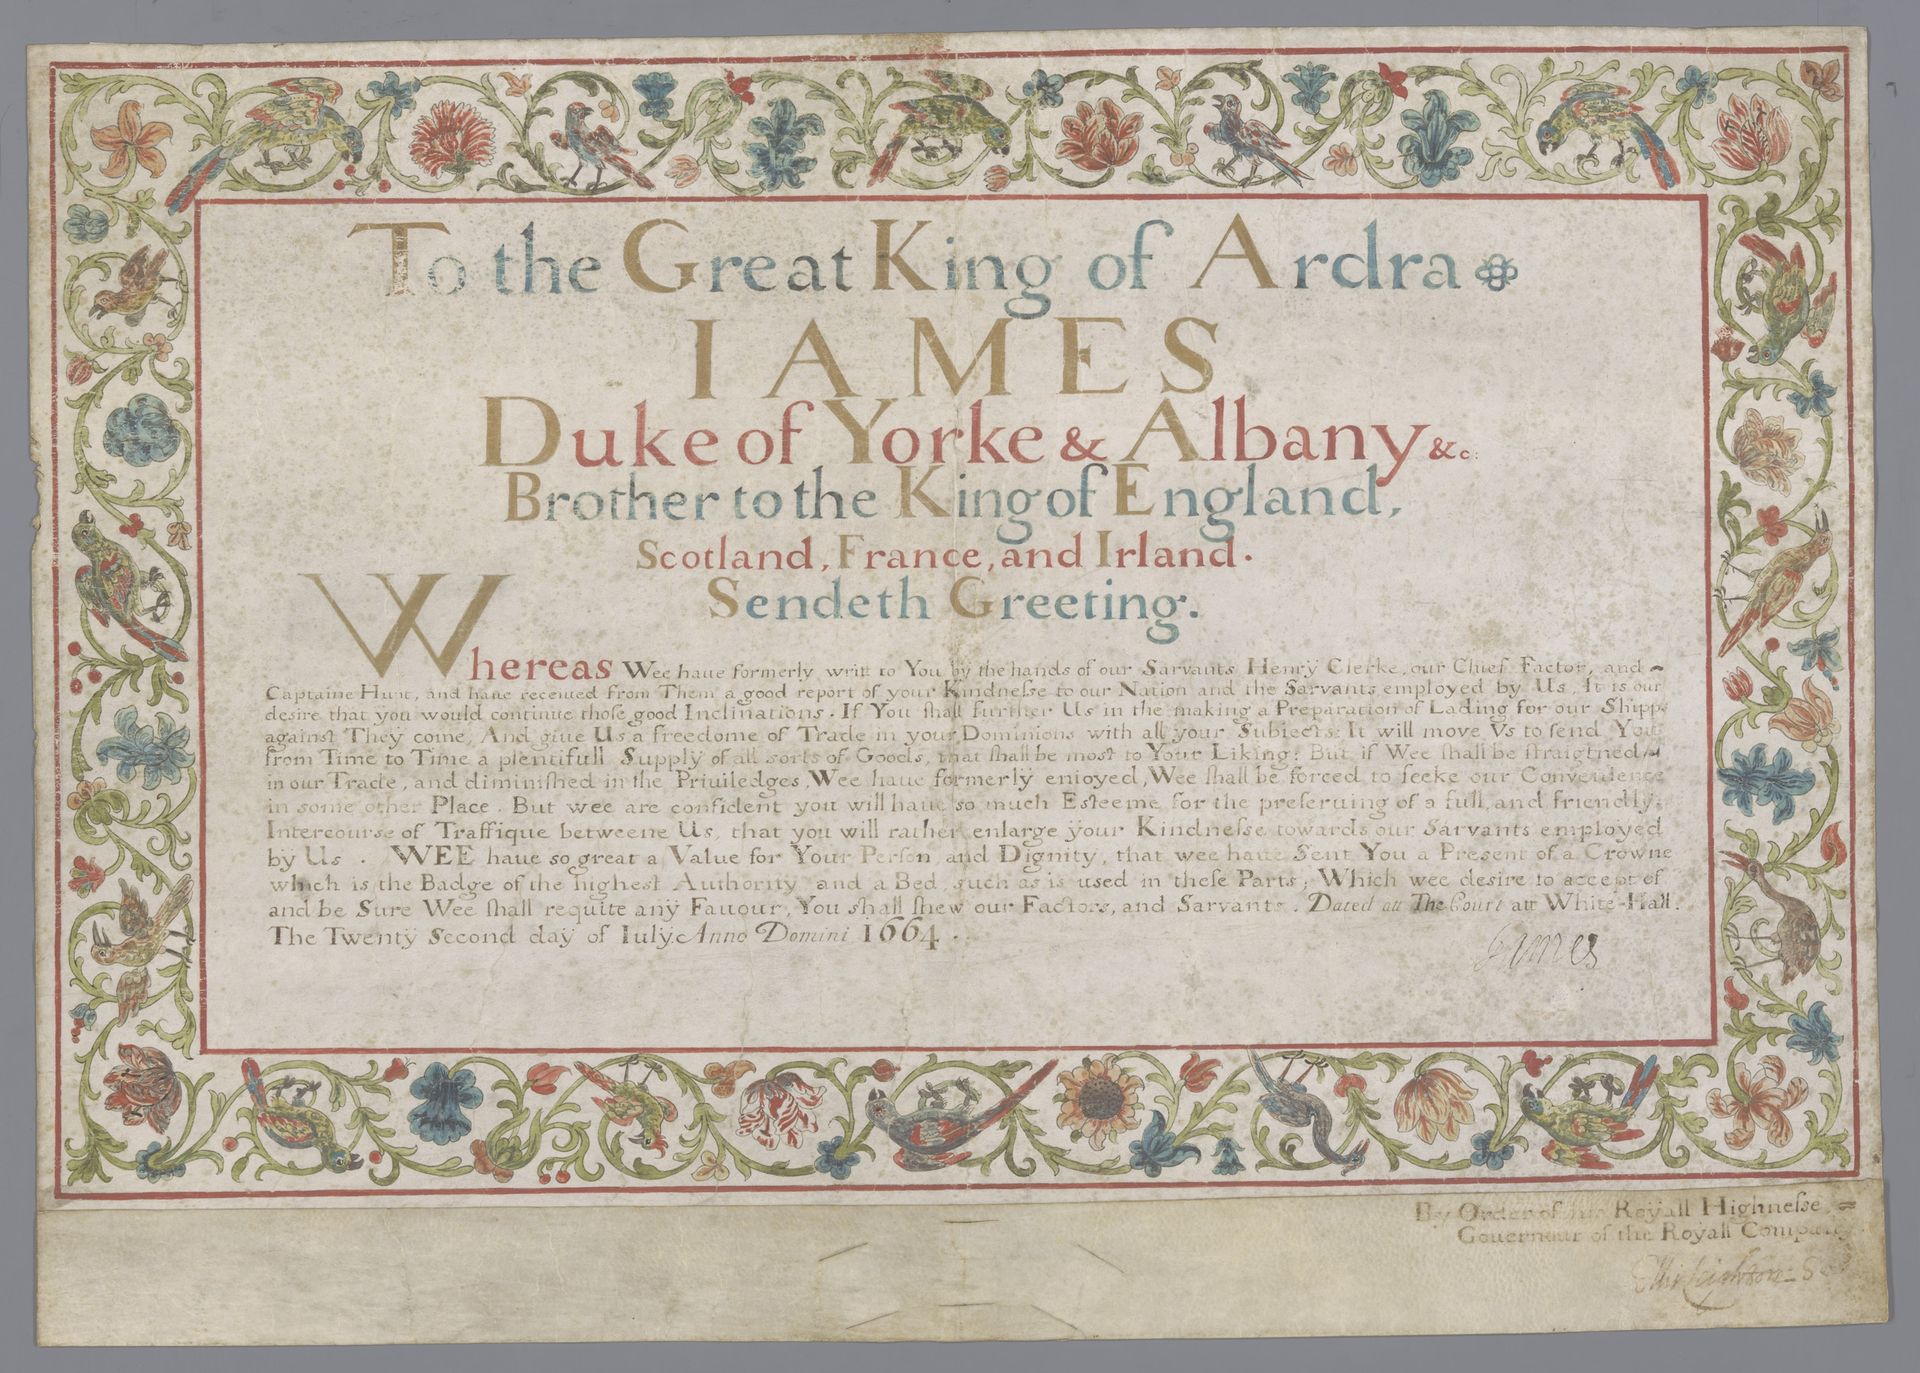 To the Great King of Ardra
IAMES
Duke of Yorke & Albany &c:
Brother to the King of England,
Scotland, France, and Irland.
Sendeth Greeting.
Whereas Wee haue formerly writt to You by the hands of our Sarvants Henry Clerke, our Chief Factor, and
Captaine Hunt, and haue receiued from Them a good report of your Kindneſse to our Nation and the Sarvants employed by Us, It is our
desire that you would continue thoſe good Inclinations. If You ſhall further Us in the making a Preparation of Lading for our Shipps
against They come, And giue Us a freedome of Trade in your Dominions with all your Subiects: It will move Vs to ſend You
from Time to Time a plentifull Supply of all sorts of Goods, that ſhall be most to Your Liking: But if Wee ſhall be ſtraigtned
in our Trade, and diminiſhed in the Priuiledges, Wee haue formerly enioyed, Wee ſhall be forced to ſeeke our Convenience
in some other Place. But wee are confident you will haue so much Esteeme for the preſeruing of a full, and friendly
Intercourse of Traffique betweene Us, that you will rather enlarge your Kindneſse towards our Sarvants employed
by Us. WEE haue so great a Value for Your Person and Dignity, that wee haue Sent You a Present of a Crowne
which is the Badge of the highest Authority and a Bed, such as is used in theſe Parts; Which wee desire to accept of
and be Sure Wee ſhall requite any Fauour, You ſhall ſhew our Factors, and Sarvants. Dated att The Court att White-Hall.
The Twenty Second day of Iuly. Anno Domini 1664.
James
By Order of his Royall Highneſse
Gouernour of the Royall Company.